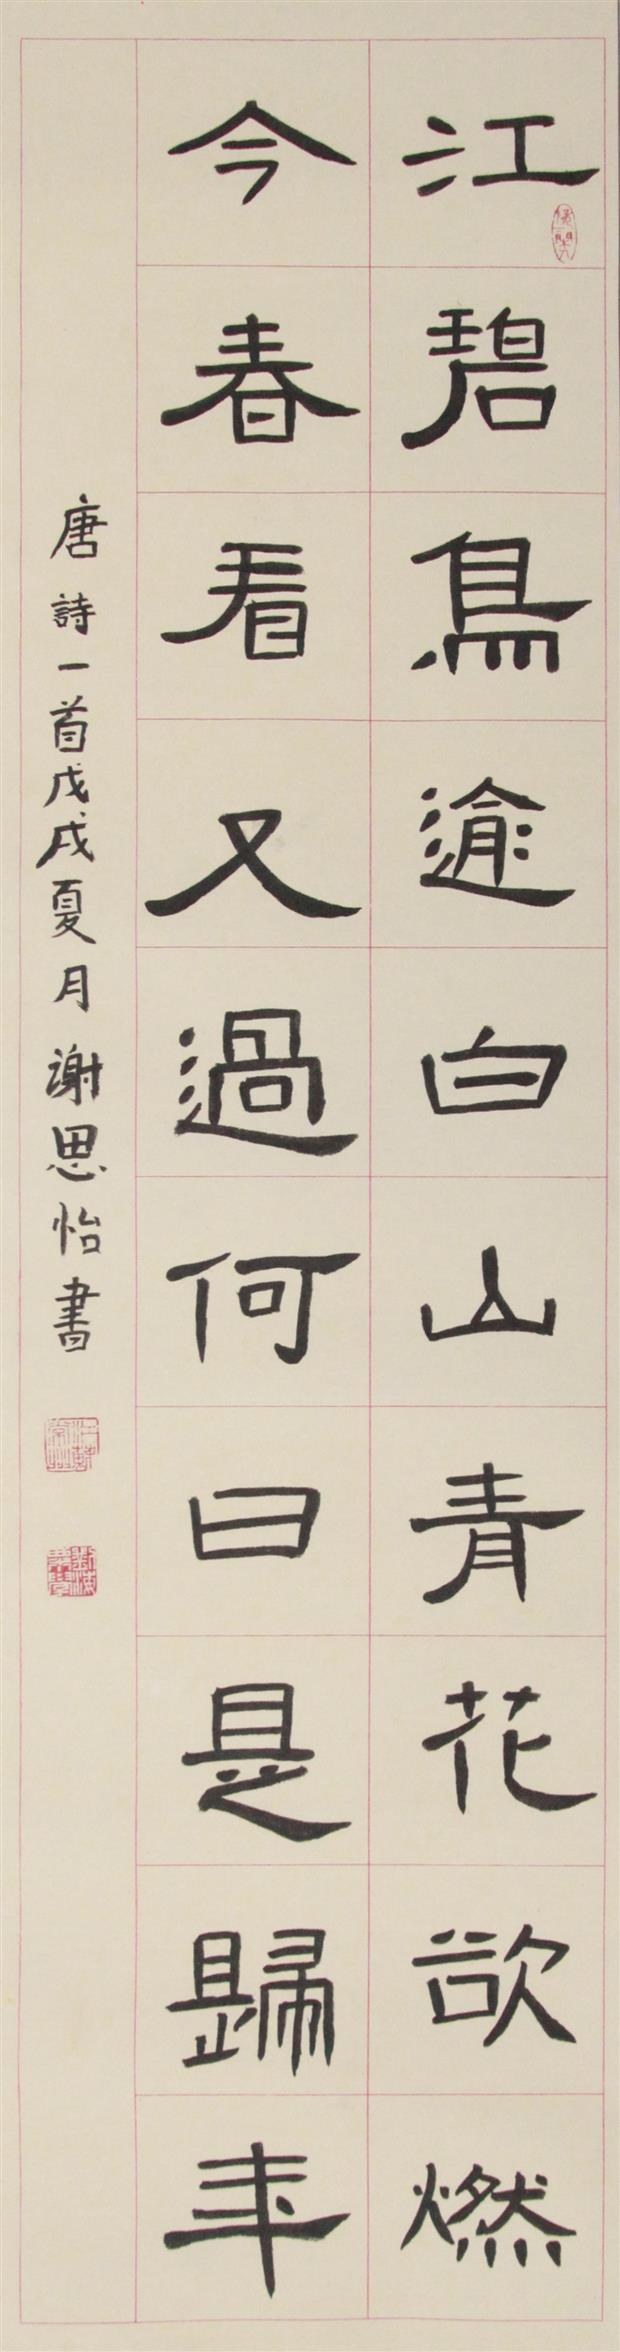 江碧鳥逾白山青花欲燃
今春看又過何日是歸年
唐詩一首戊戌夏月謝思怡書